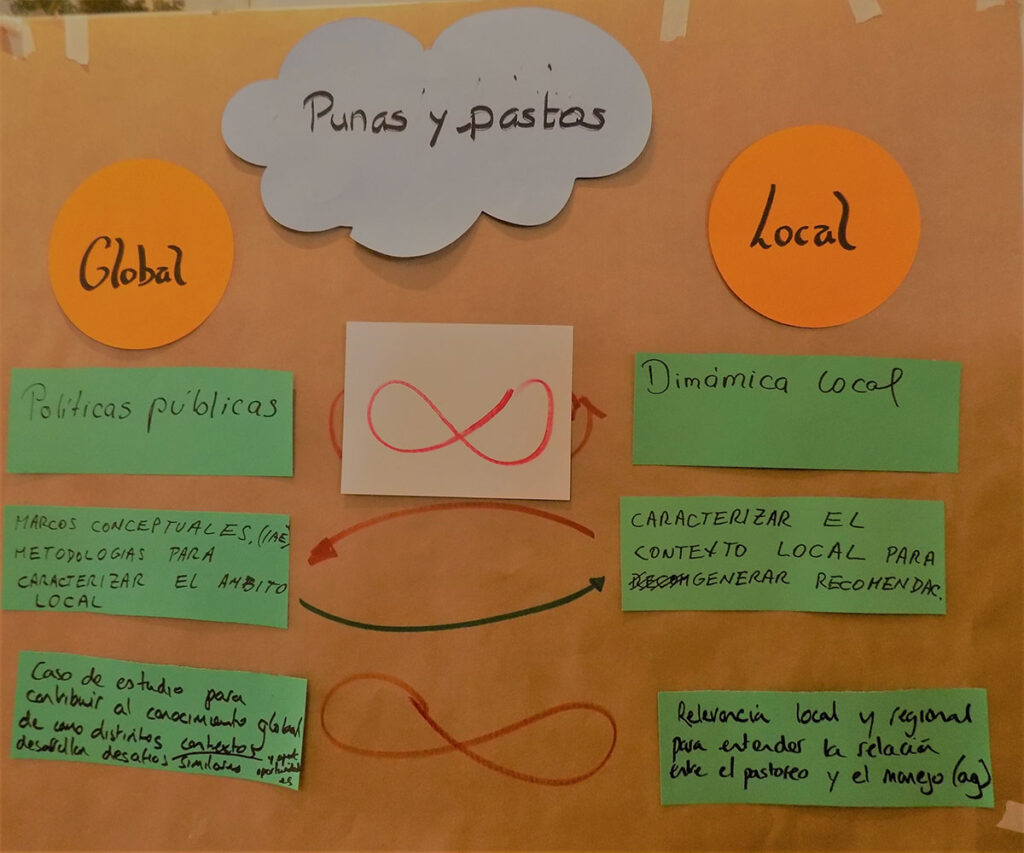 Punas y pastos
Global
Local
Políticas públicas
Dinámica local
MARCOS CONCEPTUALES, (IAE)
METODOLOGIAS PARA
CARACTERIZAR EL AMBITO
LOCAL
CARACTERIZAR EL
CONTEXTO LOCAL PARA
GENERAR RECOMENDAC.
Caso de estudio para
contribuir al conocimiento global
de como distintos contextos
desarrollan desafios similares y
oportunidades
Relevancia local y regional
para entender la relación
entre el pastoreo y el manejo (ag)